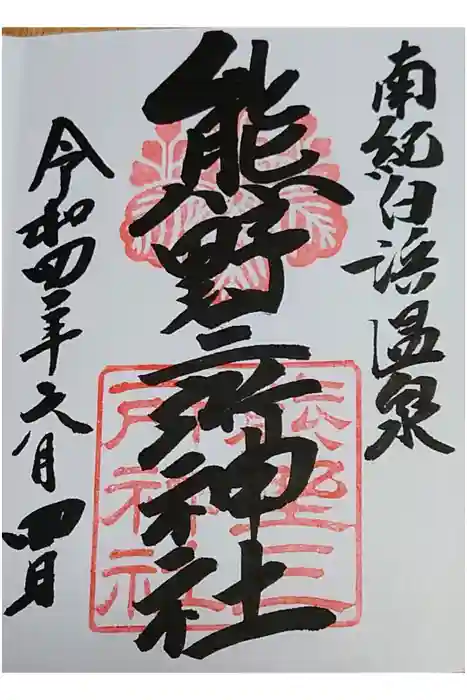 南紀白浜温泉
熊野三所神社
熊野三所神社
令和四年六月四日